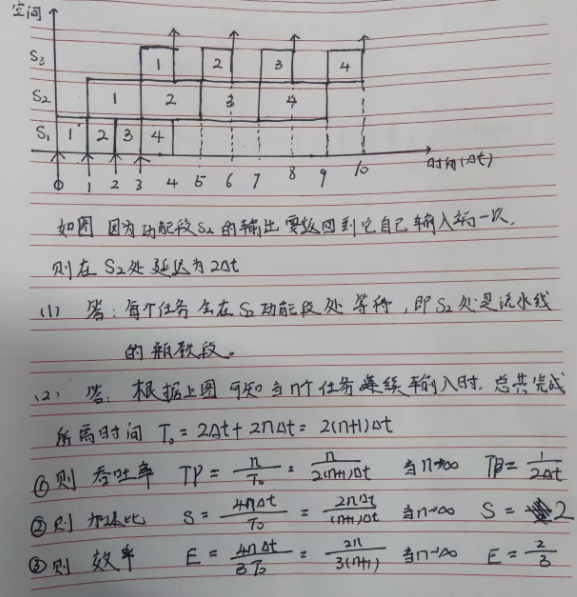 空间
S₃ 1 2 3 4
S₂ 1 2 3 4
S₁ 1 2 3 4
0 1 2 3 4 5 6 7 8 9 10 时间(Δt)
如图 因为功能段S₂的输出要返回到它自己输入端一次,
则在S₂处延迟为2Δt
(1) 答:每个任务会在S₂功能段处等待,即S₂处是流水线
的瓶颈段。
(2) 答:根据上图可知当n个任务连续输入时,总共完成
所需时间 T₀ = 2Δt + 2nΔt = 2(n+1)Δt
①则 吞吐率 TP = n/T₀ = n/2(n+1)Δt 当n→∞ TP = 1/2Δt
②则 加速比 S = 4nΔt/T₀ = 2nΔt/(n+1)Δt 当n→∞ S = 2
③则 效率 E = 4nΔt/3T₀ = 2n/3(n+1) 当n→∞ E = 2/3